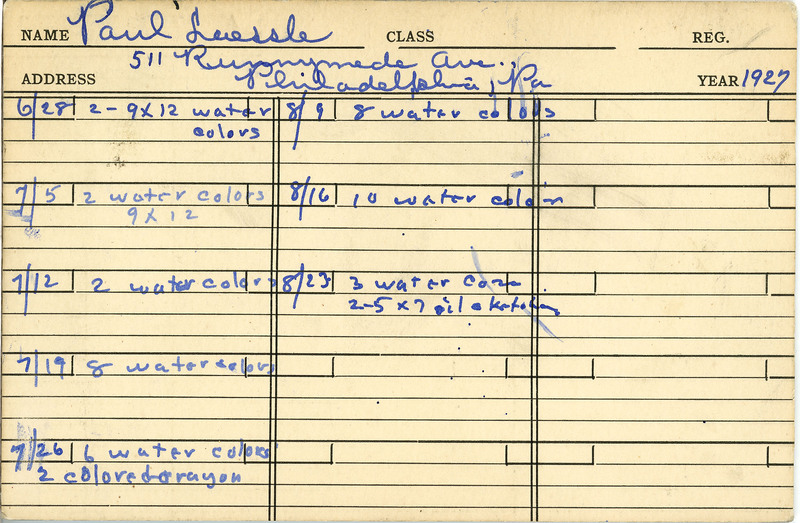 NAME Paul Laessle CLASS REG.
511 Runnymede Ave.,
ADDRESS Philadelphia, Pa YEAR 1927
6/28 2-9x12 water colors
7/5 2 water colors
9x12
7/12 2 watercolors
7/19 8 watercolors
7/26 6 water colors
2 colored crayon
8/9 8 water colors
8/16 10 water color
8/23 3 water
2-5x7 oil sketches